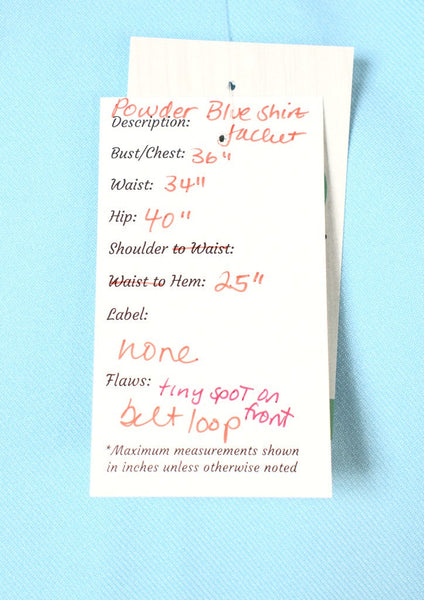 Powder Blue Shirt
Description: Jacket
Bust/Chest: 36"
Waist: 34"
Hip: 40"
Shoulder to Waist:
Waist to Hem: 25"
Label:
none
Flaws: tiny spot on
belt loop front
*Maximum measurements shown
in inches unless otherwise noted